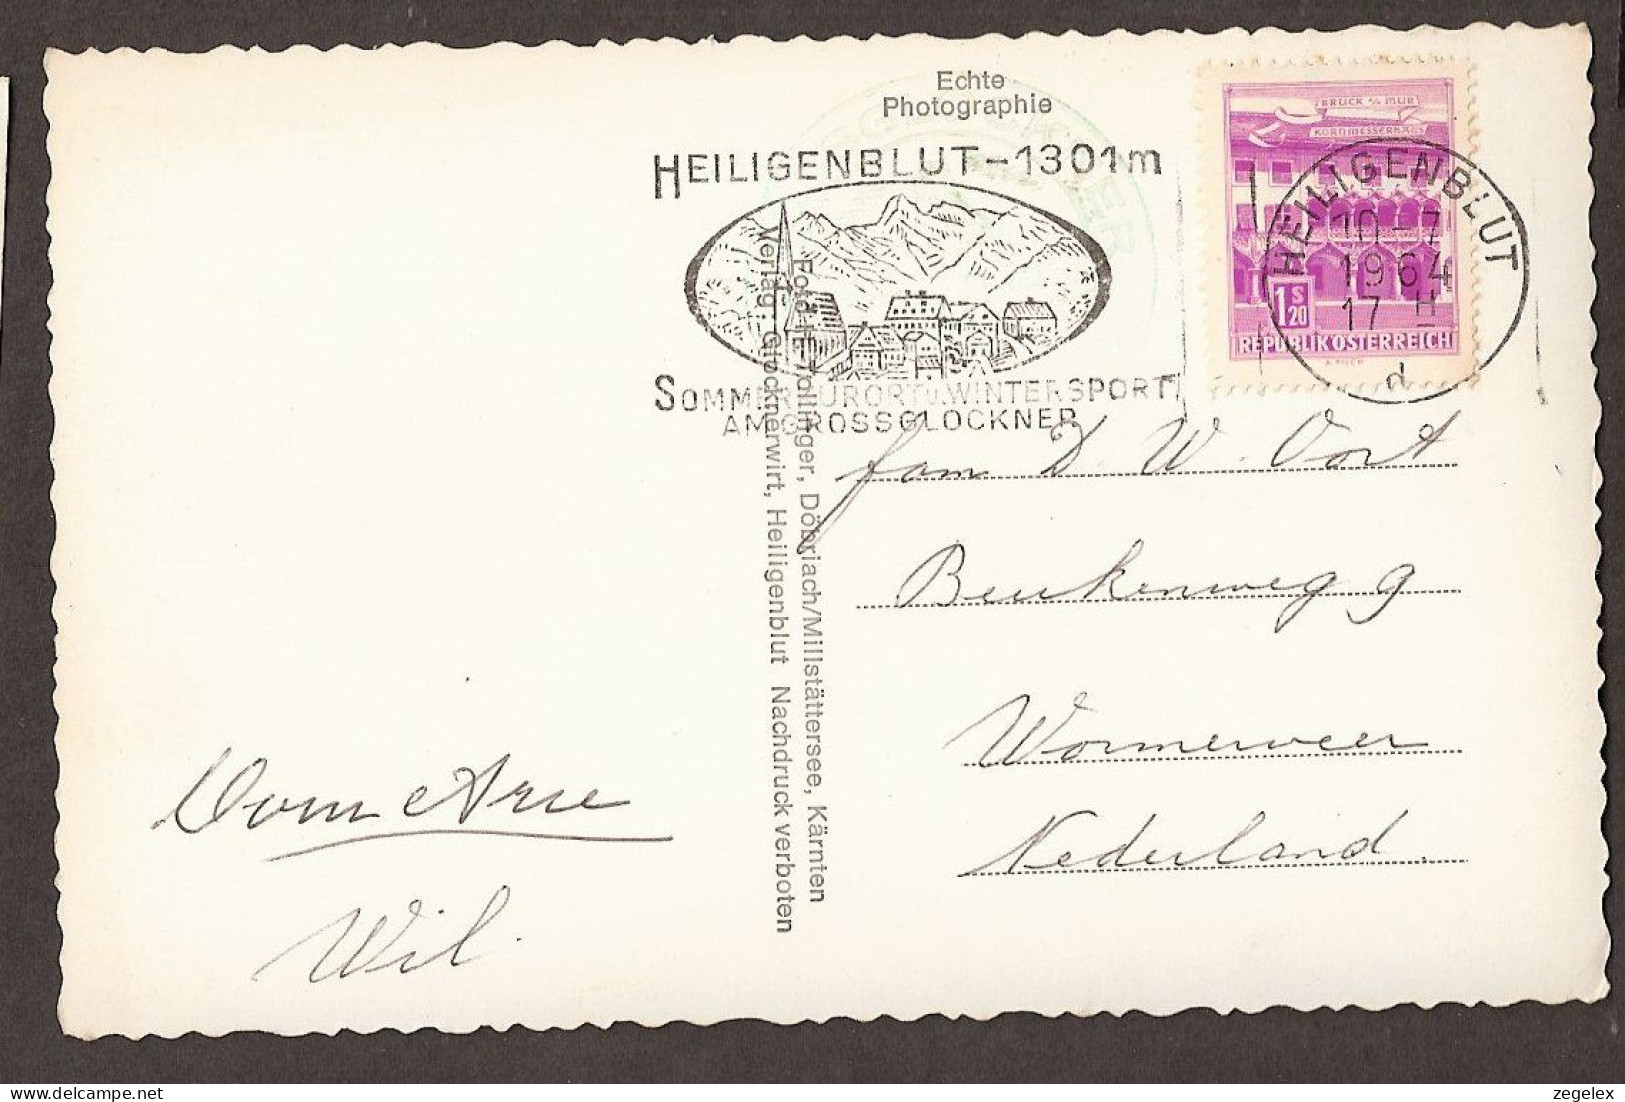 Echte
Photographie
HEILIGENBLUT-1301m
SOMMERKURORT u. WINTERSPORT
AM GROSSGLOCKNER
BRUCK a/d MUR
KORNMESSERHAUS
1 S 20
REPUBLIK ÖSTERREICH
HEILIGENBLUT
10-7
1964
17 H
d
Foto H. E. Tollinger, Döbriach/Millstättersee, Kärnten
Verlag: Glocknerwirt, Heiligenblut Nachdruck verboten
fam D. W. Oort
Beukenweg 9
Wormerveer
Nederland.
Wil.
zegelex